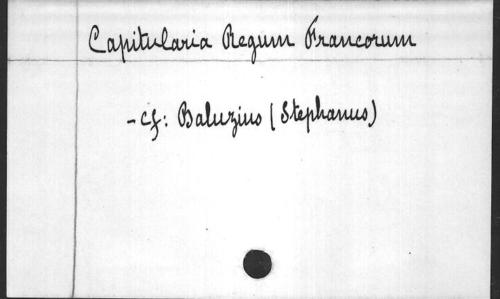 Capitularia Regum Francorum
- cf: Baluzius (Stephanus)